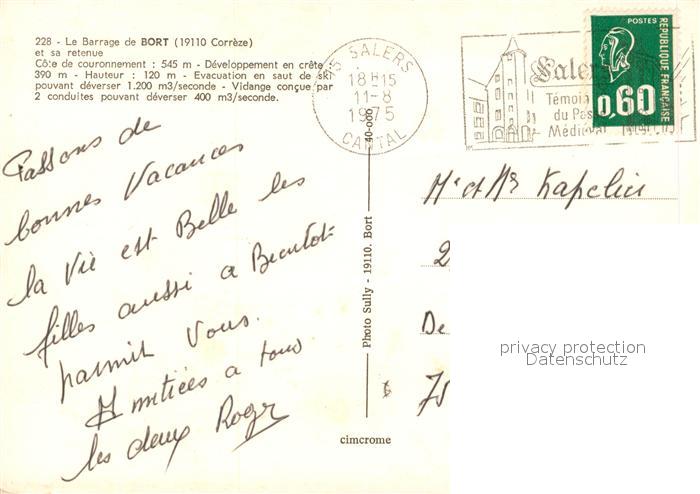 228 - Le Barrage de BORT (19110 Corrèze)
et sa retenue
Côte de couronnement : 545 m - Développement en crête
390 m - Hauteur : 120 m - Evacuation en saut de ski
pouvant déverser 1.200 m3/seconde - Vidange conçue par
2 conduites pouvant déverser 400 m3/seconde.
Passons de
bonnes Vacances
la Vie est Belle les
filles aussi a Bientot
parmit Vous.
Amitiées a tous
les deux Roger
15 SALERS
18H15
11-8
1975
CANTAL
Salers
Témoin
du Passé
Médiéval
POSTES
0,60
REPUBLIQUE FRANÇAISE
40-006
Photo Sully - 19110. Bort
cimcrome
Mr et Mme Kapelius
2
De
75
privacy protection
Datenschutz